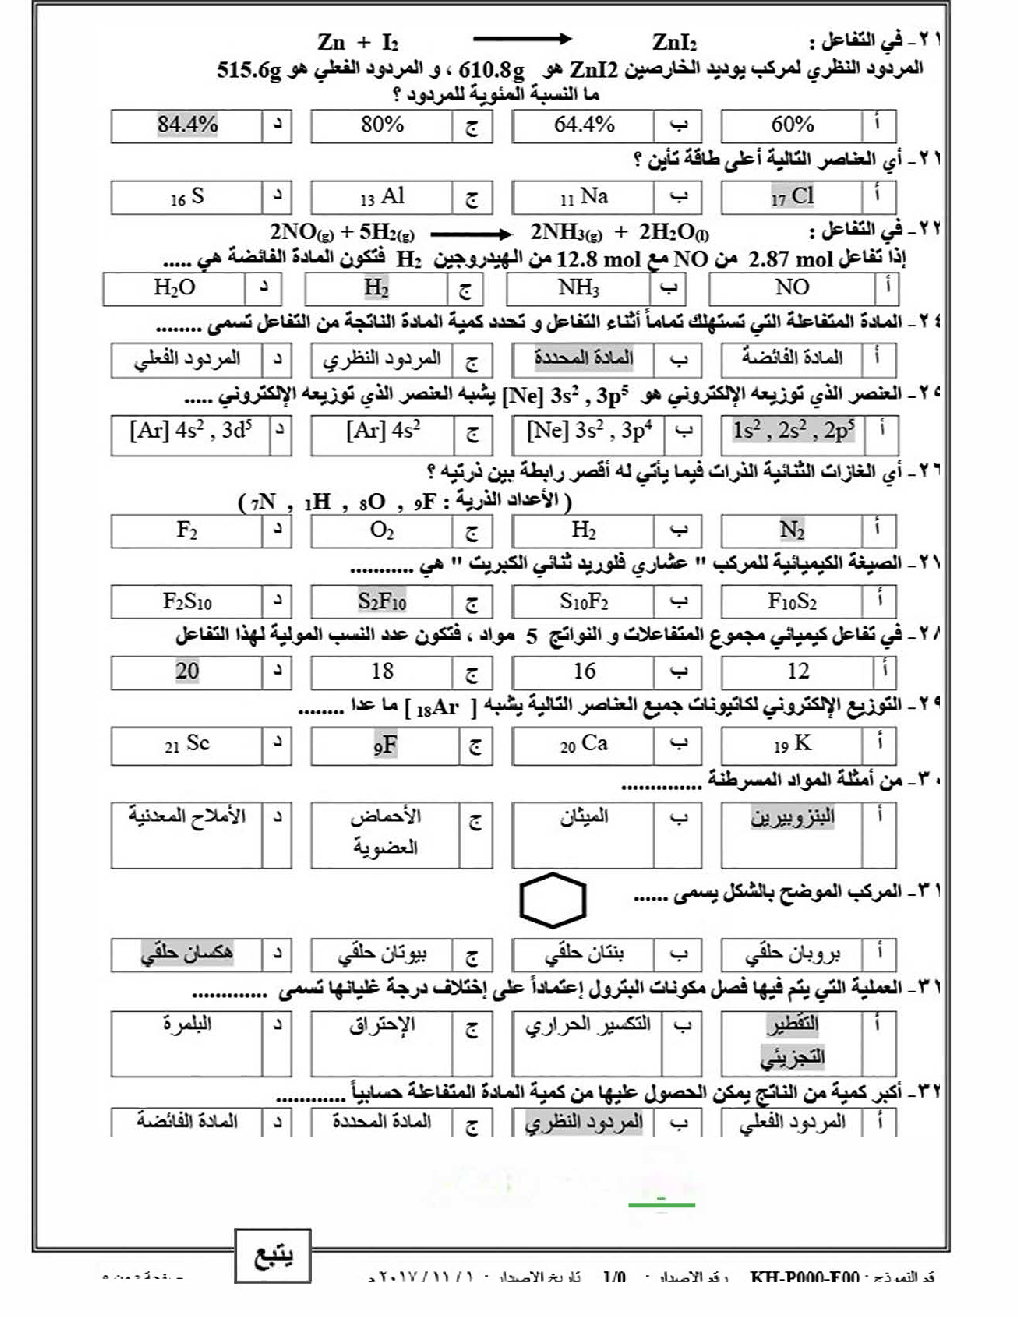 ٢١- في التفاعل : Zn + I₂ ⟶ ZnI₂
المردود النظري لمركب يوديد الخارصين ZnI2 هو 610.8g ، و المردود الفعلي هو 515.6g
ما النسبة المئوية للمردود ؟
أ 60% ب 64.4% ج 80% د 84.4%
أي العناصر التالية أعلى طاقة تأين ؟
أ ₁₇Cl ب ₁₁Na ج ₁₃Al د ₁₆S
في التفاعل : 2NO(g) + 5H₂(g) ⟶ 2NH₃(g) + 2H₂O(l)
إذا تفاعل 2.87 mol من NO مع 12.8 mol من الهيدروجين H₂ فتكون المادة الفائضة هي .....
أ NO ب NH₃ ج H₂ د H₂O
٢٤- المادة المتفاعلة التي تستهلك تماماً أثناء التفاعل و تحدد كمية المادة الناتجة من التفاعل تسمى ........
أ المادة الفائضة ب المادة المحددة ج المردود النظري د المردود الفعلي
العنصر الذي توزيعه الإلكتروني هو [Ne] 3s² , 3p⁵ يشبه العنصر الذي توزيعه الإلكتروني .....
أ 1s² , 2s² , 2p⁵ ب [Ne] 3s² , 3p⁴ ج [Ar] 4s² د [Ar] 4s² , 3d⁵
أي الغازات الثنائية الذرات فيما يأتي له أقصر رابطة بين ذرتيه ؟
( الأعداد الذرية : ₉F , ₈O , ₁H , ₇N )
أ N₂ ب H₂ ج O₂ د F₂
الصيغة الكيميائية للمركب " عشاري فلوريد ثنائي الكبريت " هي ...........
أ F₁₀S₂ ب S₁₀F₂ ج S₂F₁₀ د F₂S₁₀
في تفاعل كيميائي مجموع المتفاعلات و النواتج 5 مواد ، فتكون عدد النسب المولية لهذا التفاعل
أ 12 ب 16 ج 18 د 20
٢٩- التوزيع الإلكتروني لكاتيونات جميع العناصر التالية يشبه [ ₁₈Ar ] ما عدا ........
أ ₁₉K ب ₂₀Ca ج ₉F د ₂₁Sc
من أمثلة المواد المسرطنة ..............
أ البنزوبيرين ب الميثان ج الأحماض العضوية د الأملاح المعدنية
المركب الموضح بالشكل يسمى ......
أ بروبان حلقي ب بنتان حلقي ج بيوتان حلقي د هكسان حلقي
العملية التي يتم فيها فصل مكونات البترول إعتماداً على إختلاف درجة غليانها تسمى .............
أ التقطير التجزيئي ب التكسير الحراري ج الإحتراق د البلمرة
أكبر كمية من الناتج يمكن الحصول عليها من كمية المادة المتفاعلة حسابياً ............
أ المردود الفعلي ب المردود النظري ج المادة المحددة د المادة الفائضة
يتبع
KH-P000-F00 رقم الاصدار : 1/0 تاريخ الاصدار : ٢٠١٧/١١/١ م